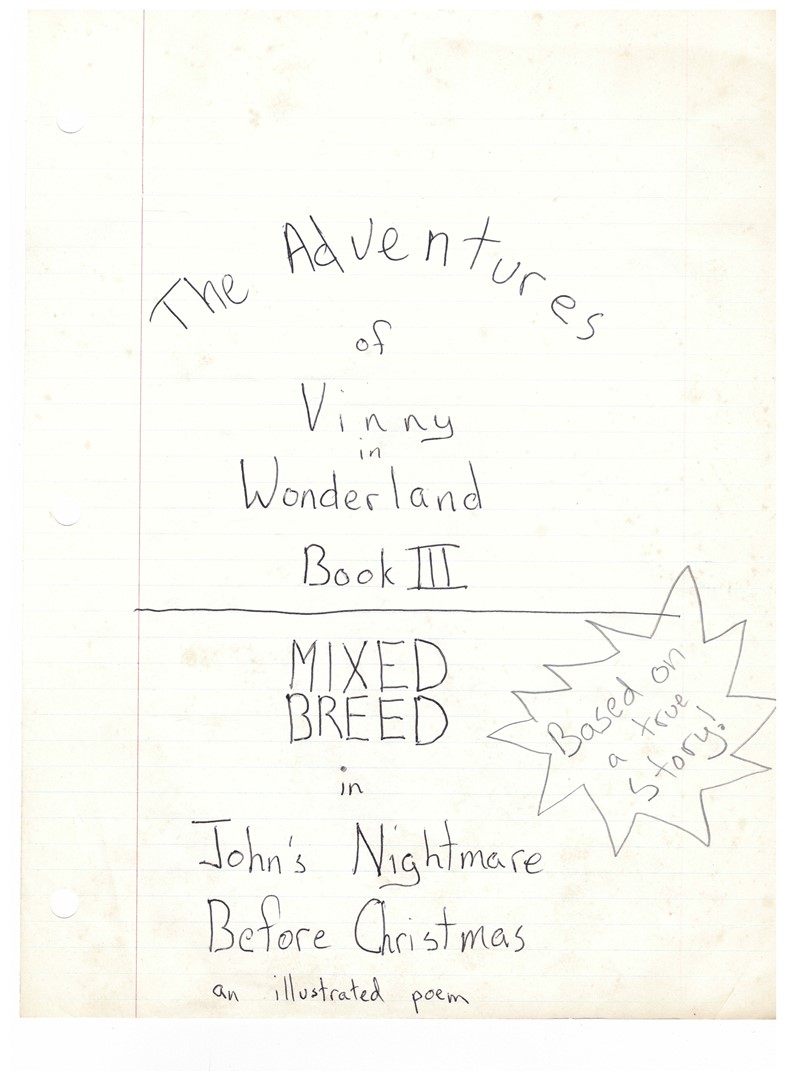 The Adventures
of
Vinny
in
Wonderland
Book III
MIXED
BREED
in
John's Nightmare
Before Christmas
an illustrated poem
Based on
a true
story!